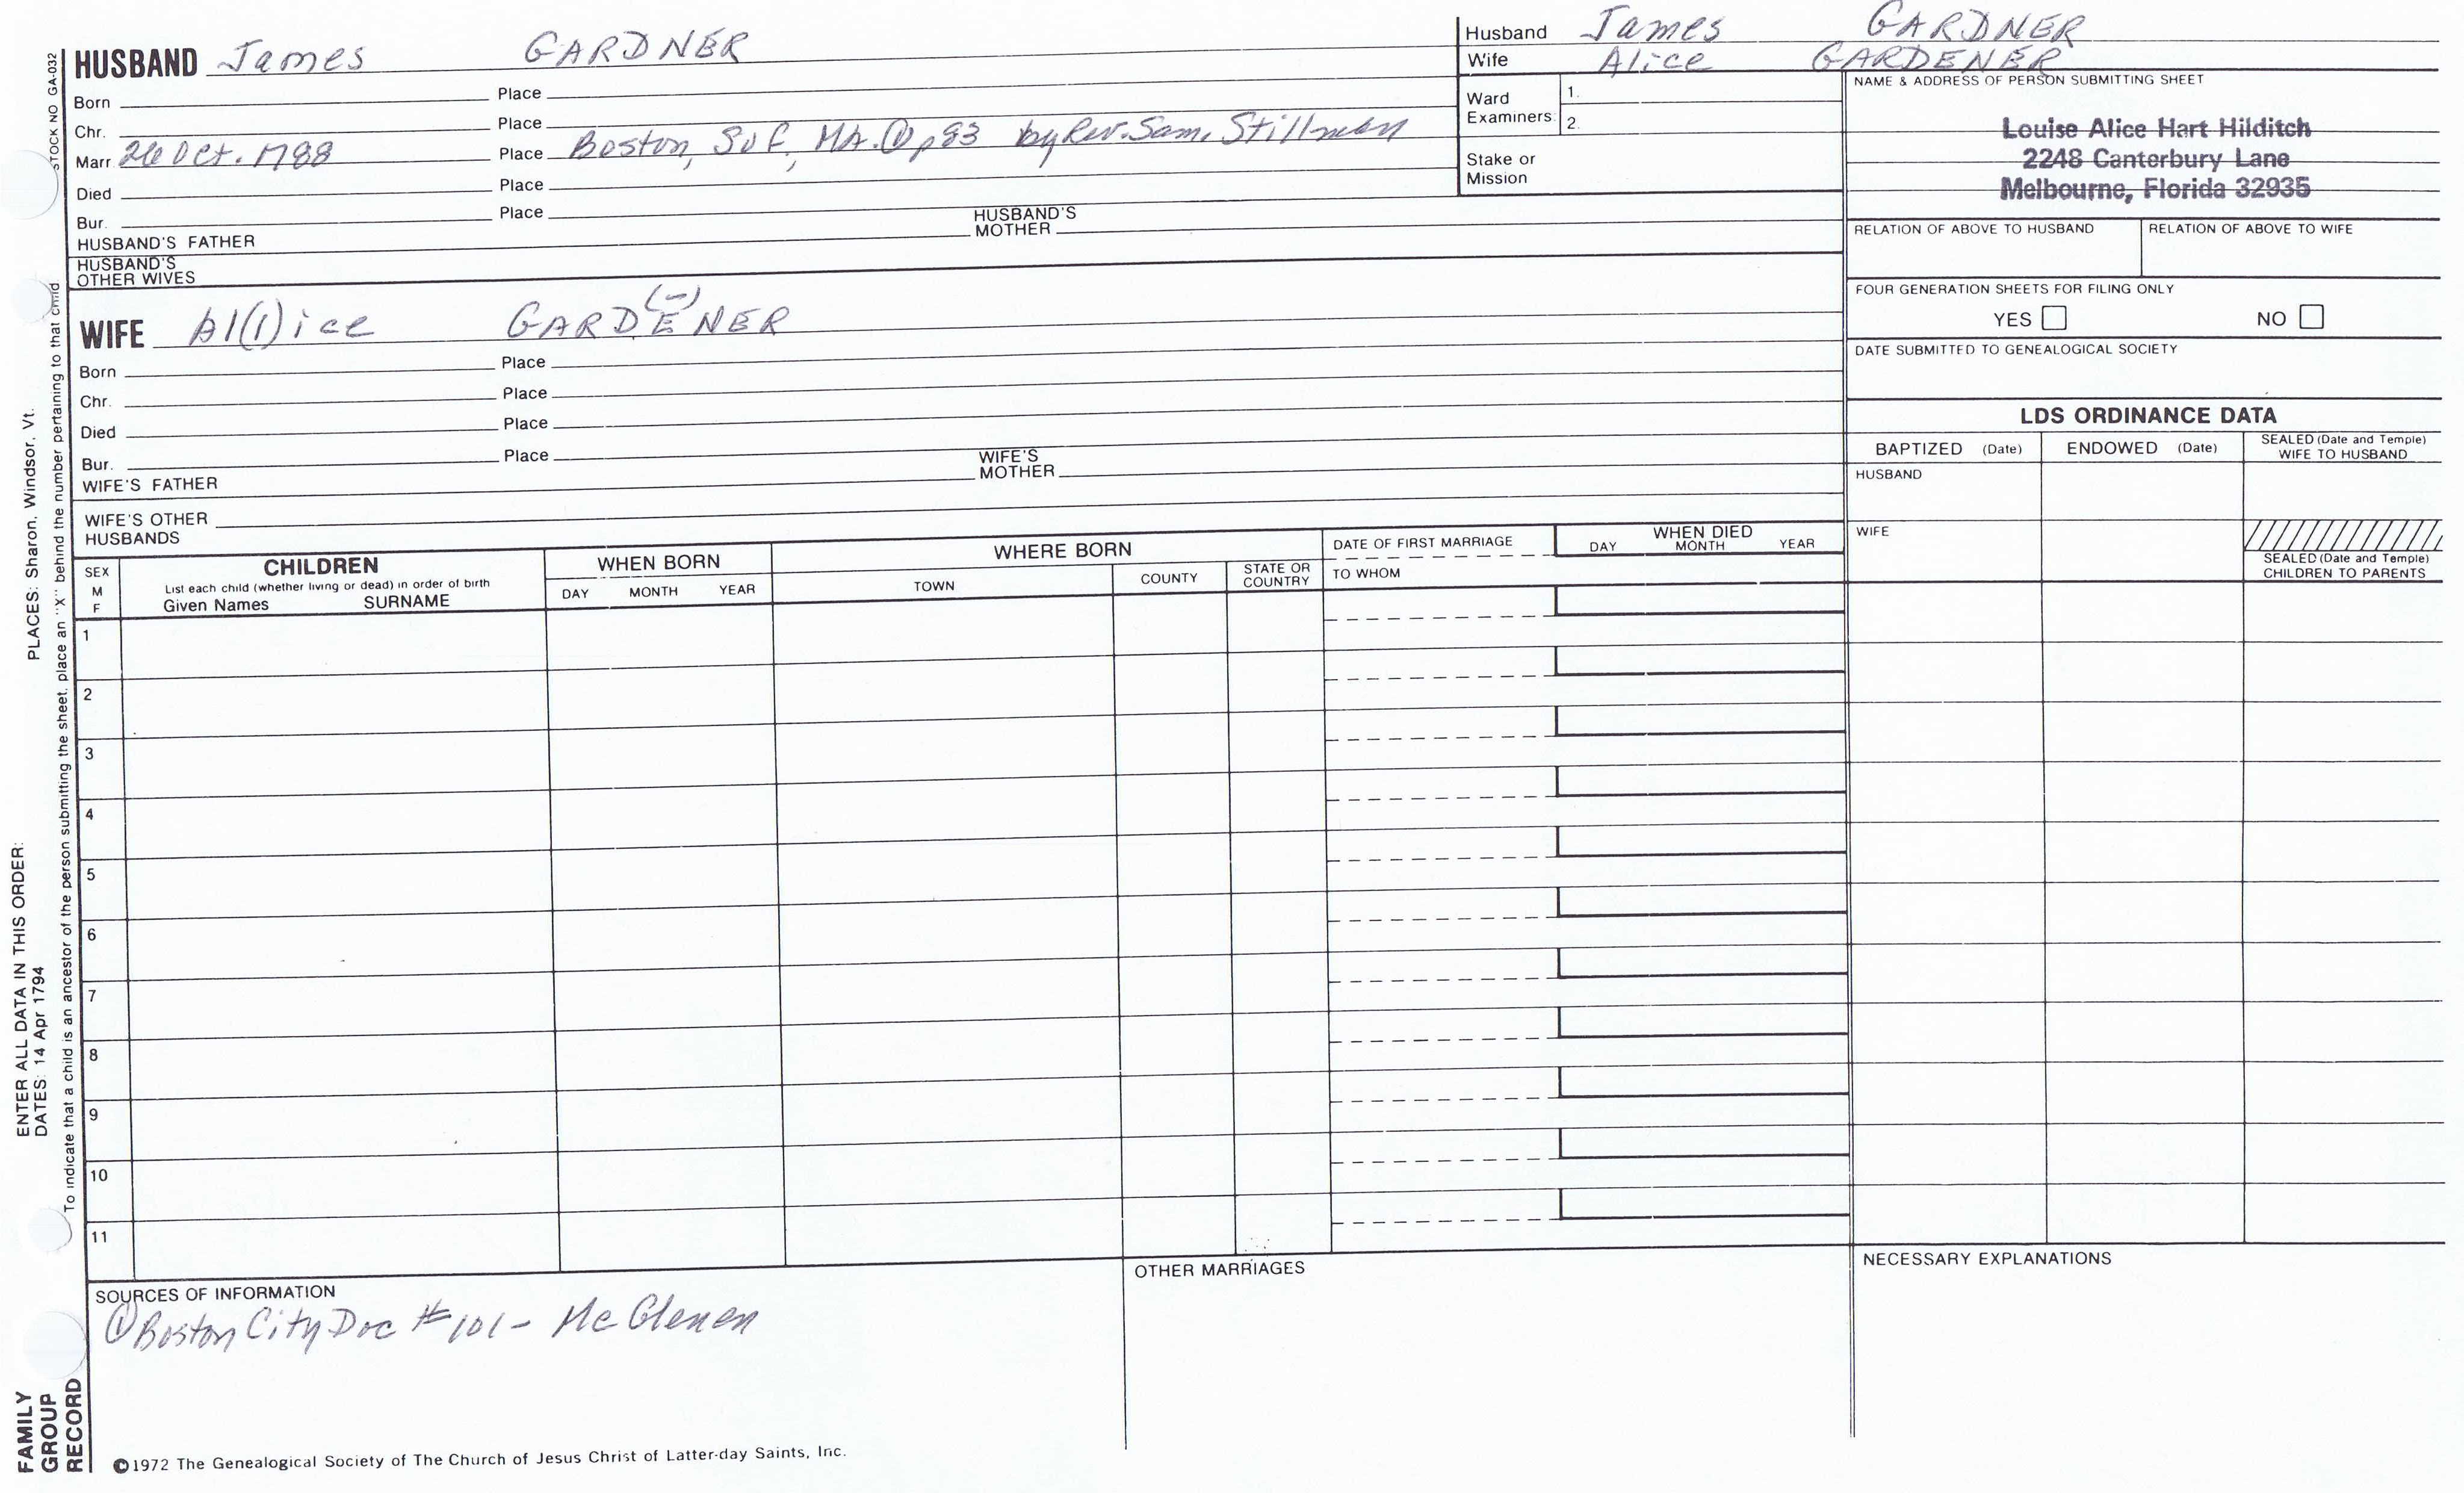 HUSBAND James GARDNER
Born Place
Chr. Place
Marr 26 Oct. 1788 Place Boston, Suf, MA. ① p83 by Rev. Sam. Stillman
Died Place
Bur. Place
HUSBAND'S FATHER HUSBAND'S MOTHER
HUSBAND'S OTHER WIVES
WIFE Al(l)ice GARDENER (-)
Born Place
Chr. Place
Died Place
Bur. Place
WIFE'S FATHER WIFE'S MOTHER
WIFE'S OTHER HUSBANDS
Husband James GARDNER
Wife Alice GARDENER
Ward Examiners: 1.
2.
Stake or Mission
NAME & ADDRESS OF PERSON SUBMITTING SHEET
Louise Alice Hart Hilditch
2248 Canterbury Lane
Melbourne, Florida 32935
RELATION OF ABOVE TO HUSBAND RELATION OF ABOVE TO WIFE
FOUR GENERATION SHEETS FOR FILING ONLY
YES NO
DATE SUBMITTED TO GENEALOGICAL SOCIETY
LDS ORDINANCE DATA
BAPTIZED (Date) ENDOWED (Date) SEALED (Date and Temple) WIFE TO HUSBAND
HUSBAND
WIFE
SEALED (Date and Temple)
CHILDREN TO PARENTS
SEX M F
CHILDREN
List each child (whether living or dead) in order of birth
Given Names SURNAME
WHEN BORN
DAY MONTH YEAR
WHERE BORN
TOWN COUNTY STATE OR COUNTRY
DATE OF FIRST MARRIAGE
TO WHOM
WHEN DIED
DAY MONTH YEAR
1
2
3
4
5
6
7
8
9
10
11
SOURCES OF INFORMATION
① Boston City Doc #101- McGlenen
OTHER MARRIAGES
NECESSARY EXPLANATIONS
©1972 The Genealogical Society of The Church of Jesus Christ of Latter-day Saints, Inc.
STOCK NO GA-032
To indicate that a child is an ancestor of the person submitting the sheet, place an "X" behind the number pertaining to that child
ENTER ALL DATA IN THIS ORDER:
DATES: 14 Apr 1794 PLACES: Sharon, Windsor, Vt.
FAMILY
GROUP
RECORD